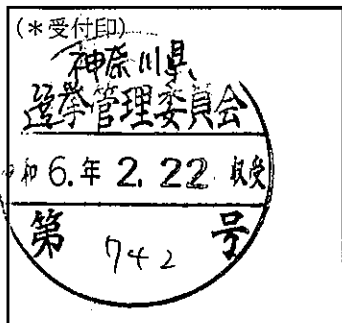 (*受付印)
神奈川県
選挙管理委員会
令和 6.年 2. 22 収受
第 742 号